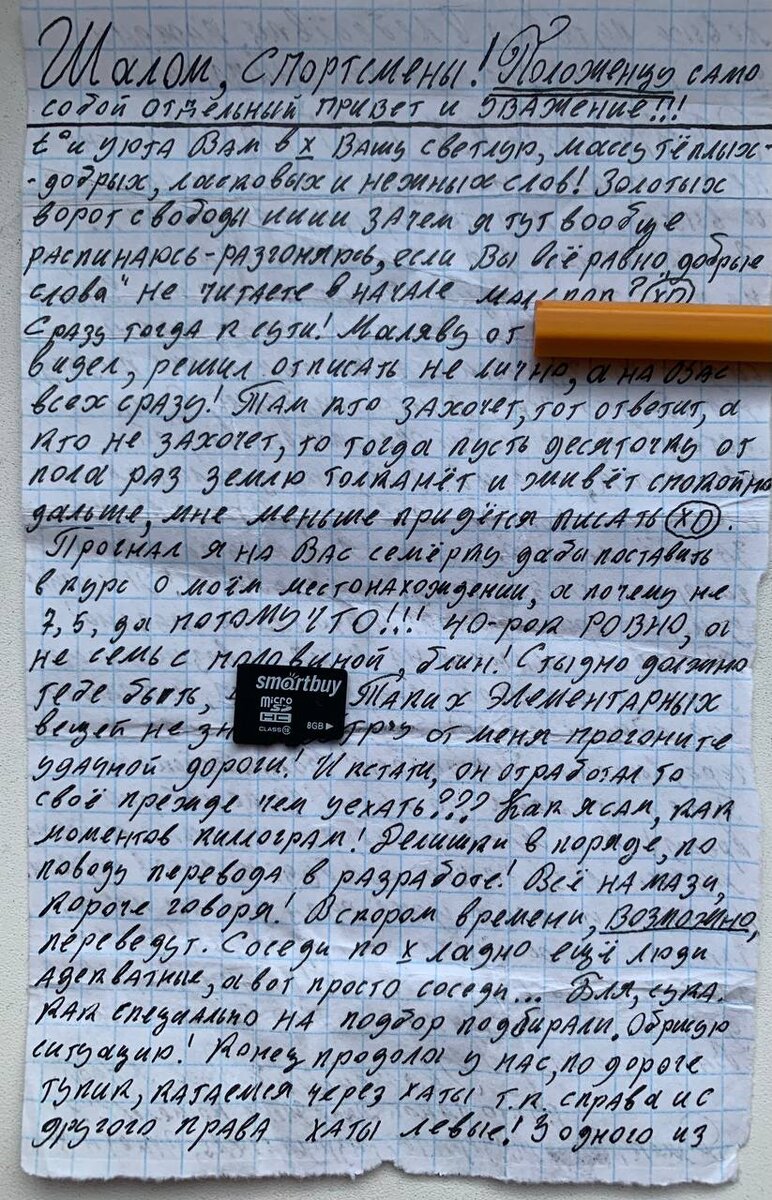 Шалом, спортсмены! Положенцу само
собой отдельный привет и уважение!!!
t° и уюта Вам в х Вашу светлую, массу тёплых-
-добрых, ласковых и нежных слов! Золотых
ворот свободы ииии зачем я тут вообще
распинаюсь-разгоняюсь, если Вы всё равно „добрые
слова" не читаете в начале XD
Сразу тогда к сути! Маляву от
видел, решил отписать не лично, а на Вас
всех сразу! Там кто захочет, тот ответит, а
кто не захочет, то тогда пусть десяточку от
пола раз землю толканёт и живёт спокойно
дальше, мне меньше придётся писать XD.
Прогнал я на Вас семёрку дабы поставить
в курс о моём местонахождении, а почему не
7,5, да ПОТОМУ ЧТО!!! 40-рок РОВНО, а
не семь с половиной, блин! Стыдно должно
тебе быть, Таких элементарных
вещей не от меня прогоните
удачной дороги! И кстати, он отработал то
своё прежде чем уехать??? Как я сам, как
моментов киллограм! Делишки в поряде, по
поводу перевода в разработе! Всё на мази,
короче говоря! Вскором времени, возможно,
переведут. Соседи по х ладно ещё люди
адекватные, а вот просто соседи... Бля, сука.
как специально на подбор подбирали. Обрисую
ситуацию! Конец продола у нас, по дороге
тупик, катаемся через хаты т.к. справа и с
другого права хаты левые! З одного из
smartbuy
micro SD
HC
CLASS 10
8GB